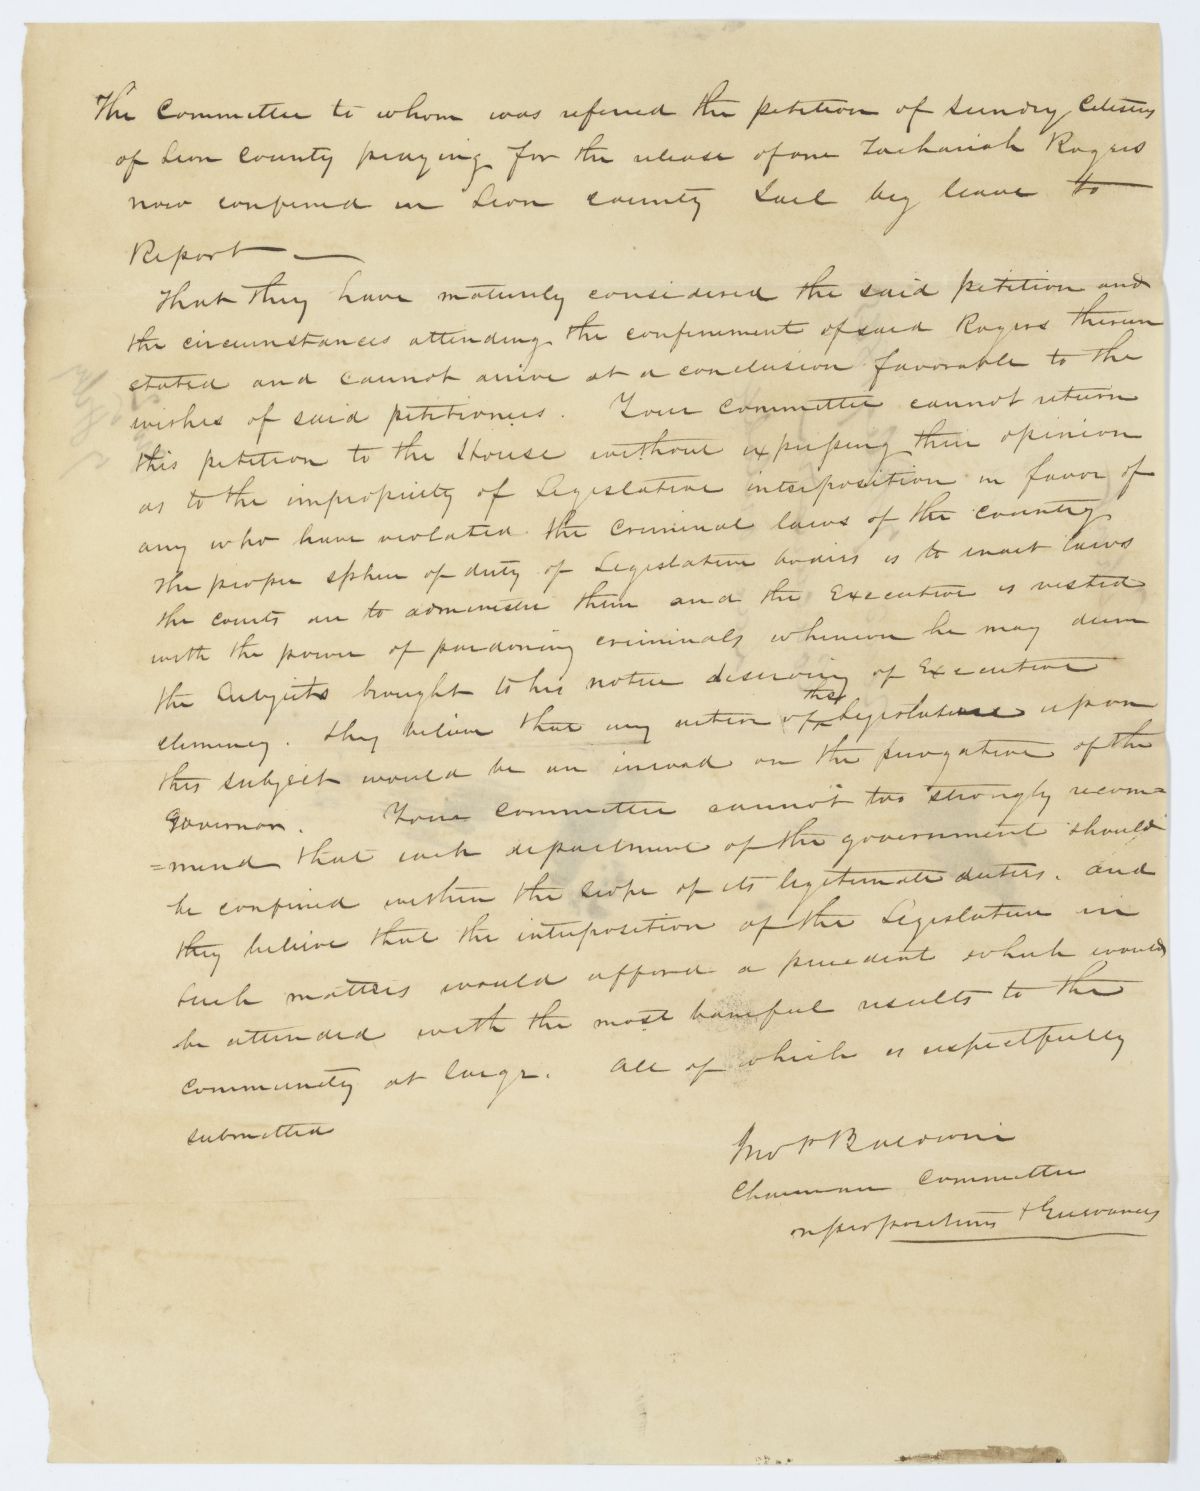 The Committee to whom was refered the petition of sundry Citizens
of Leon County praying for the release of one Zachariah Rogers
now confined in Leon county Jail beg leave to
Report —
That they have maturely considered the said petition and
the circumstances attending the confinement of said Rogers therein
stated and cannot arrive at a conclusion favorable to the
wishes of said petitioners. Your Committee cannot return
this petition to the House without expressing their opinion
as to the impropriety of Legislative interposition in favor of
any who have violated the criminal laws of the country
the proper sphere of duty of Legislative bodies is to enact laws
the courts are to administer them and the Executive is vested
with the power of pardoning criminals whenever he may deem
the subjects brought to his notice deserving of Executive
clemency. They believe that any action of the Legislature upon
this subject would be an inroad on the prerogative of the
Governor. Your Committee cannot too strongly recom=
=mend that each department of the government should
be confined within the scope of its legitimate duties. and
they believe that the interposition of the Legislature in
such matters would afford a precedent which would
be attended with the most baneful results to the
community at large. All of which is respectfully
submitted
Jno P Baldwin
Chairman Committee
on propositions & Grievances